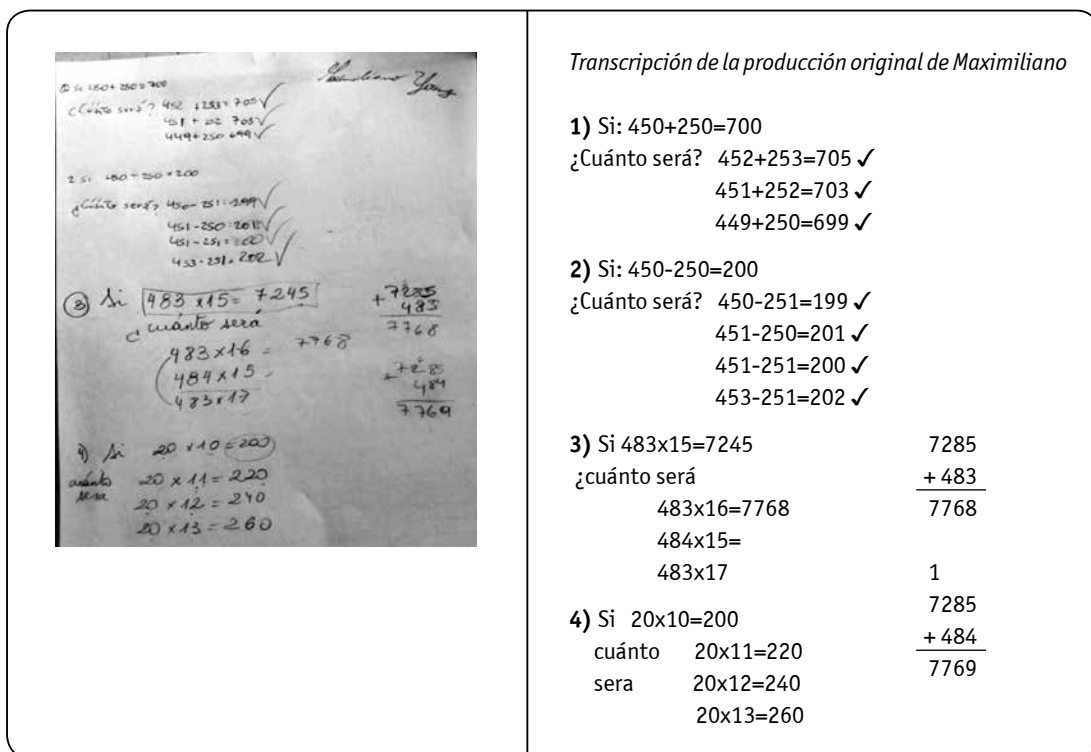 Maximiliano Young
2) Si 450+250=700
¿Cuánto será? 452 +253=705✓
451 + 252 703✓
449+250 699✓
2 Si 450-250=200
¿Cuánto será? 450-251=199✓
451-250=201✓
451-251=200✓
453-251=202✓
3 Si 483 x15= 7245
¿cuánto será
483x16 = 7768
484x15=
483x17
7285
+ 483
7768
7285
+ 484
7769
4) Si 20 x10=200
cuánto 20 x 11=220
sera 20 x 12=240
20 x 13=260
Transcripción de la producción original de Maximiliano
1) Si: 450+250=700
¿Cuánto será? 452+253=705 ✓
451+252=703 ✓
449+250=699 ✓
2) Si: 450-250=200
¿Cuánto será? 450-251=199 ✓
451-250=201 ✓
451-251=200 ✓
453-251=202 ✓
3) Si 483x15=7245
¿cuánto será
483x16=7768
484x15=
483x17
7285
+ 483
7768
1
7285
+ 484
7769
4) Si 20x10=200
cuánto 20x11=220
sera 20x12=240
20x13=260